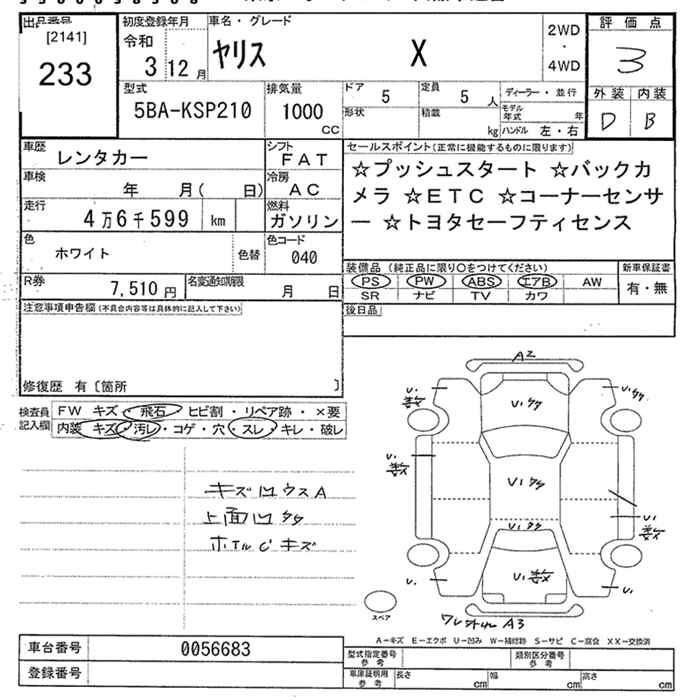 出品番号
[2141]
233
初度登録年月
令和
3 12月
車名・グレード
ヤリス X
2WD
・
4WD
評価点
3
外装 内装
D B
型式
5BA-KSP210
排気量
1000
CC
ドア
5
定員
5 人
形状
積載
kg
ディーラー・並行
モデル年式 年
ハンドル 左・右
車歴
レンタカー
シフト
FAT
車検
年 月( 日)
冷房
AC
走行
4万6千599 km
燃料
ガソリン
色
ホワイト
色替
色コード
040
R券
7,510円
名変通知期限
月 日
セールスポイント(正常に機能するものに限ります)
☆プッシュスタート ☆バックカ
メラ ☆ETC ☆コーナーセンサ
ー ☆トヨタセーフティセンス
装備品(純正品に限り○をつけてください)
PS PW ABS エアB AW
SR ナビ TV カワ
新車保証書
有・無
後日品
注意事項申告欄(不具合内容等は具体的に記入して下さい)
修復歴 有〔箇所 〕
検査員
記入欄
FW キズ・飛石・ヒビ割・リペア跡・×要
内装 キズ・汚レ・コゲ・穴・スレ・キレ・破レ
キズ凹ウスA
上面凹タタ
ホイルCキズ
A2
U1タタ
U1タタ
U1タタ
U1
U1
U1
U1
U1
A3
スペア
A-キズ E-エクボ U-凹み W-補修跡 S-サビ C-腐食 XX-交換済
車台番号
0056683
登録番号
型式指定番号
参考
類別区分番号
参考
車庫証明用
参考
長さ cm
幅 cm
高さ cm